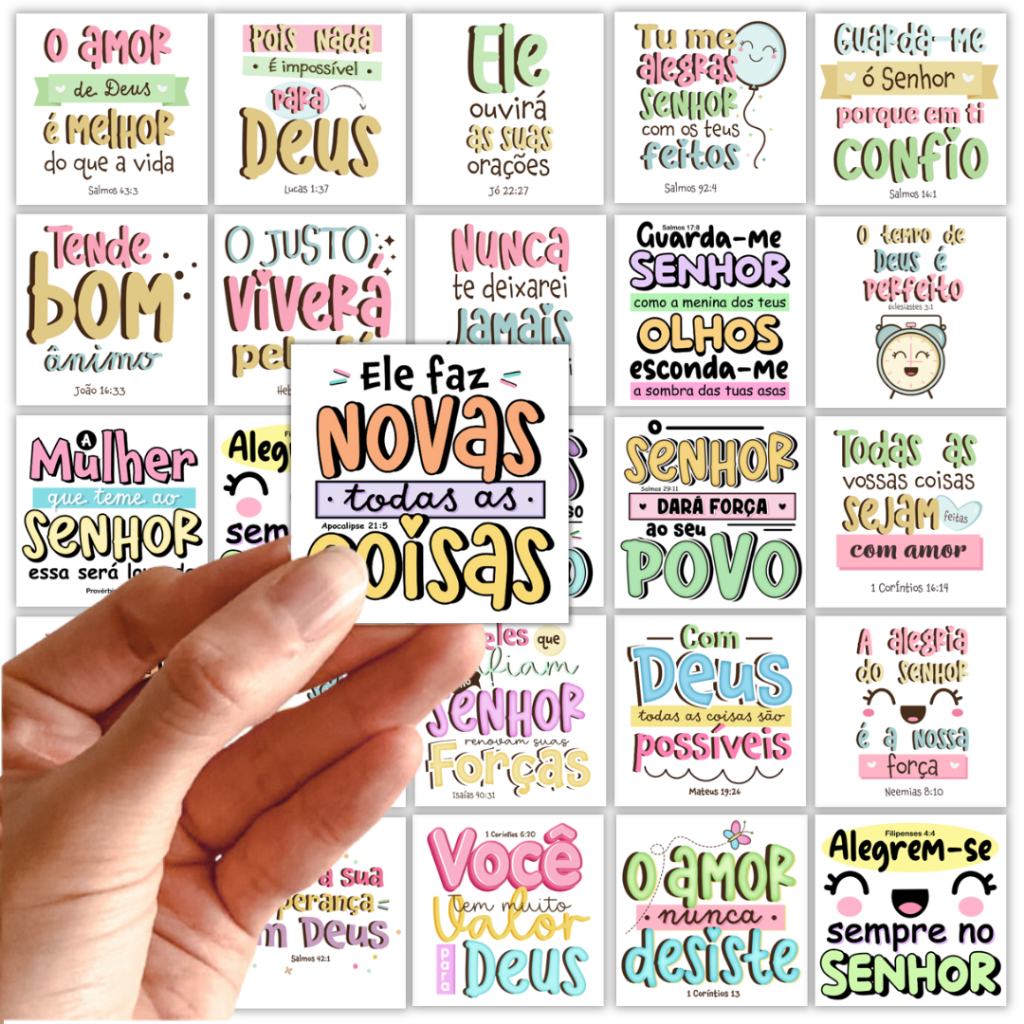 O amor
de Deus
é melhor
do que a vida
Salmos 63:3
Pois nada
É impossível
para
Deus
Lucas 1:37
Ele
ouvirá
as suas
orações
Jó 22:27
Tu me
alegras
Senhor
com os teus
feitos
Salmos 92:4
Guarda-me
ó Senhor
porque em ti
confio
Salmos 16:1
Tende
bom
ânimo
João 16:33
O justo
viverá
Nunca
te deixarei
jamais
Salmos 17:8
Guarda-me
Senhor
como a menina dos teus
olhos
esconda-me
a sombra das tuas asas
O tempo de
Deus é
perfeito
Eclesiastes 3:1
A
Mulher
que teme ao
Senhor
essa será
Ele faz
novas
todas as
Apocalipse 21:5
coisas
O
Senhor
Salmos 29:11
dará força
ao seu
povo
Todas as
vossas coisas
sejam
feitas
com amor
1 Coríntios 16:14
que
Senhor
renovam suas
forças
Isaías 40:31
Com
Deus
todas as coisas são
possíveis
Mateus 19:26
A alegria
do Senhor
é a nossa
força
Neemias 8:10
a sua
Deus
Salmos 42:1
1 Coríntios 6:20
Você
tem muito
valor
para
Deus
O amor
nunca
desiste
1 Coríntios 13
Filipenses 4:4
Alegrem-se
sempre no
Senhor